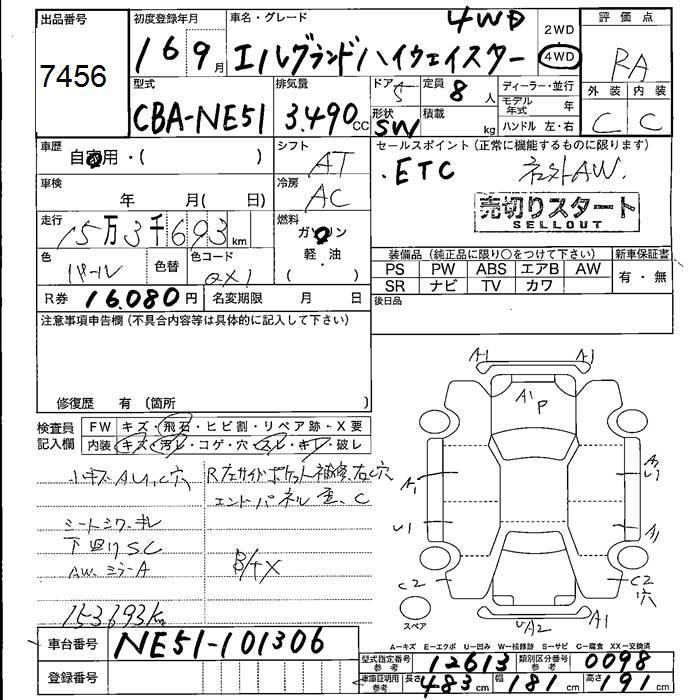 出品番号
7456
初度登録年月
16 9月
車名・グレード
4WD
エルグランドハイウェイスター
2WD
4WD
評価点
RA
外装 内装
C C
型式
CBA-NE51
排気量
3.490cc
ドア
5
形状
SW
定員 8人
積載 kg
ディーラー・並行
モデル年式 年
ハンドル 左・右
車歴
自家用・( )
シフト
AT
セールスポイント(正常に機能するものに限ります)
・ETC 社外AW.
売切りスタート
SELLOUT
車検
年 月( 日)
冷房
AC
走行
15万3千693km
燃料
ガソリン
軽・油
・( )
色
パール
色替
色コード
QX1
装備品(純正品に限り○をつけて下さい)
PS PW ABS エアB AW
SR ナビ TV カワ
新車保証書
有・無
R券 16.080円
名変期限 月 日
後日品
注意事項申告欄(不具合内容等は具体的に記入して下さい)
修復歴 有 (箇所
検査員記入欄
FW キズ・飛石・ヒビ割・リペア跡・X要
内装 キズ・汚レ・コゲ・穴・スレ・キレ・破レ
小キズAU,C穴
R左サイドポケット補修、右C穴
エンドパネル歪、C
シートシワ、キレ
下回りSC
AW、ミラーA
B/TX
153693km
A1 A1
A1
P
A1
U1
A1
U1
U1
A1
C2
C2
穴
スペア
UA2
A1
車台番号 NE51-101306
登録番号
A=キズ E=エクボ U=凹み W=補修跡 S=サビ C=腐食 XX=交換済
型式指定番号 参考 12613
類別区分番号 参考 0098
車庫証明用 参考 長さ 483cm 幅 181cm 高さ 191cm